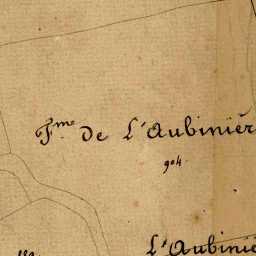 Fme de L'Aubinièr
904
L'Aubiniè